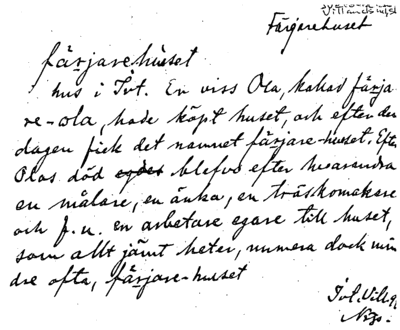 Villands hd, Sk
Färgarehuset
färjarehuset
hus i Ivt. En viss Ola, kallad färja
re-ola, hade köpt huset, och efter den
dagen fick det namnet färjare-huset. Efter
Olas död blefvo efter hvarandra
en målare, en änka, en träskomakare
och f.n. en arbetare egare till huset,
som allt jämt heter, numera dock min
dre ofta, färjare-huset